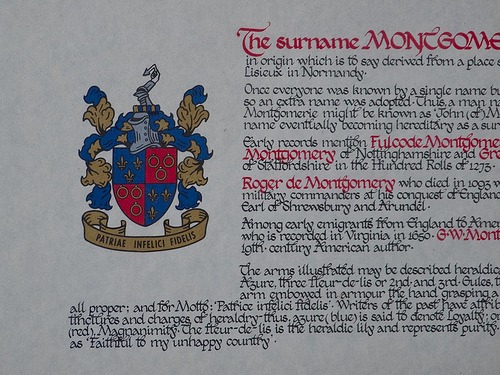 The surname MONTGOME
in origin which is to say derived from a place s
Lisieux in Normandy.
Once everyone was known by a single name bu
so an extra name was adopted. Thus, a man n
Montgomerie might be known as 'John (of) M
name eventually becoming hereditary as a sur
Early records mention Fulcode Montgome
Montgomery of Nottinghamshire and Gre
of Staffordshire in the Hundred Rolls of 1273.
Roger de Montgomery who died in 1093 w
military commanders at his conquest of England
Earl of Shrewsbury and Arundel.
Among early emigrants from England to Ame
who is recorded in Virginia in 1650. G.W. Mont
19th. century American author.
The arms illustrated may be described heraldic
Azure, three fleur-de-lis or 2nd. and 3rd. Gules, t
arm embowed in armour the hand grasping a
all proper; and for Motto: 'Patrice infelici fidelis'. Writers of the past have attrib
tinctures and charges of heraldry thus, azure (blue) is said to denote Loyalty; or
(red), Magnanimity. The fleur-de-lis is the heraldic lily and represents purity.
as 'Faithful to my unhappy country'.
PATRIAE INFELICI FIDELIS